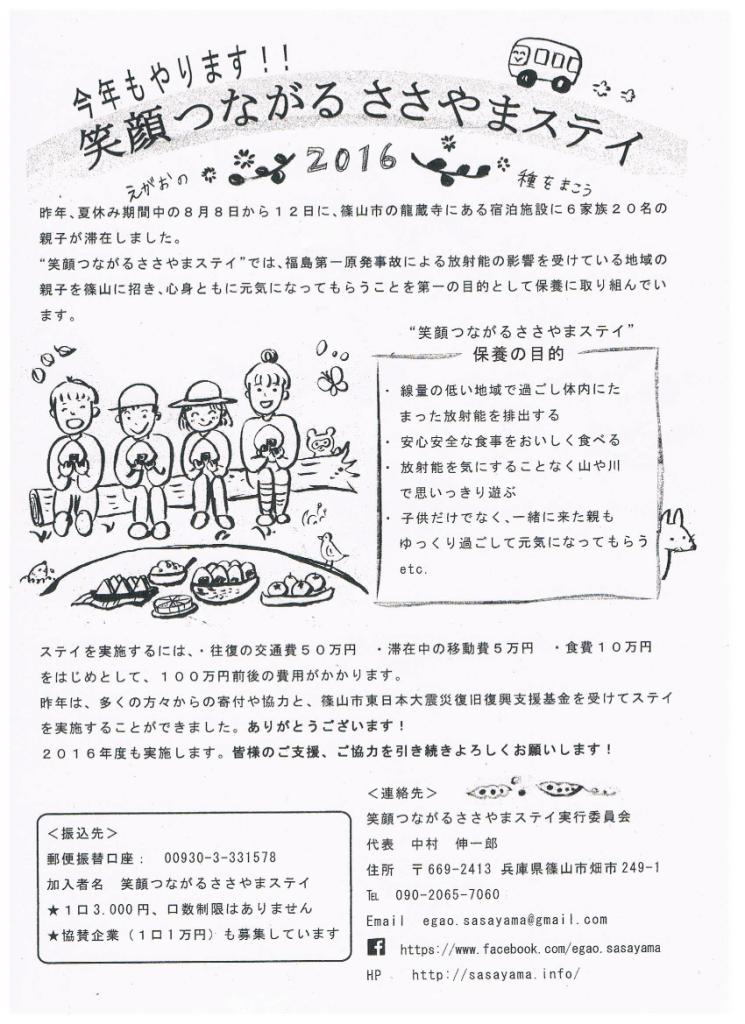 今年もやります!!
笑顔つながるささやまステイ
えがおの 2016 種をまこう
昨年、夏休み期間中の8月8日から12日に、篠山市の龍蔵寺にある宿泊施設に6家族20名の
親子が滞在しました。
“笑顔つながるささやまステイ”では、福島第一原発事故による放射能の影響を受けている地域の
親子を篠山に招き、心身ともに元気になってもらうことを第一の目的として保養に取り組んでい
ます。
“笑顔つながるささやまステイ”
保養の目的
・ 線量の低い地域で過ごし体内にた
まった放射能を排出する
・ 安心安全な食事をおいしく食べる
・ 放射能を気にすることなく山や川
で思いっきり遊ぶ
・ 子供だけでなく、一緒に来た親も
ゆっくり過ごして元気になってもらう
etc.
ステイを実施するには、・往復の交通費50万円 ・滞在中の移動費5万円 ・食費10万円
をはじめとして、100万円前後の費用がかかります。
昨年は、多くの方々からの寄付や協力と、篠山市東日本大震災復旧復興支援基金を受けてステイ
を実施することができました。ありがとうございます!
2016年度も実施します。皆様のご支援、ご協力を引き続きよろしくお願いします!
<振込先>
郵便振替口座: 00930-3-331578
加入者名 笑顔つながるささやまステイ
★1口3.000円、口数制限はありません
★協賛企業(1口1万円)も募集しています
<連絡先>
笑顔つながるささやまステイ実行委員会
代表 中村 伸一郎
住所 〒669-2413 兵庫県篠山市畑市249-1
℡ 090-2065-7060
Email egao.sasayama@gmail.com
https://www.facebook.com/egao.sasayama
HP http://sasayama.info/